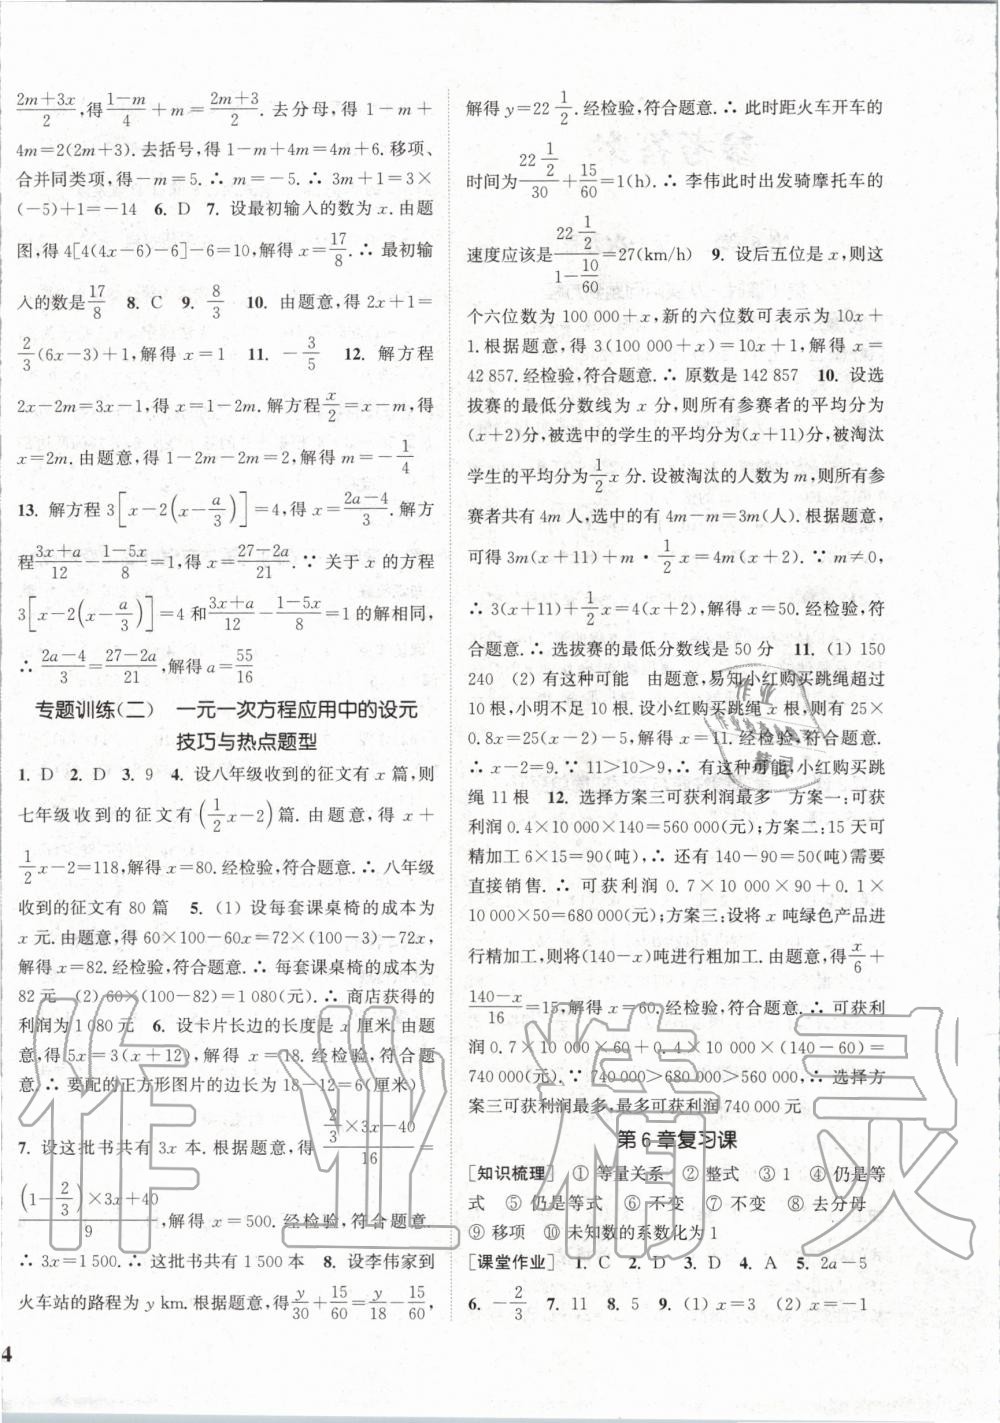 $\frac{2m+3x}{2}$,得$\frac{1-m}{4}+m=\frac{2m+3}{2}$. 去分母,得 1－m＋
4m＝2(2m＋3). 去括号,得 1－m＋4m＝4m＋6. 移项、
合并同类项,得－m＝5. ∴ m＝－5. ∴ 3m＋1＝3×
(－5)＋1＝－14 6. D 7. 设最初输入的数为 x. 由题
图,得 4[4(4x－6)－6]－6＝10,解得 x＝$\frac{17}{8}$. ∴ 最初输
入的数是$\frac{17}{8}$ 8. C 9. $\frac{8}{3}$ 10. 由题意,得 2x＋1＝
$\frac{2}{3}$(6x－3)＋1,解得 x＝1 11. －$\frac{3}{5}$ 12. 解方程
2x－2m＝3x－1,得 x＝1－2m. 解方程$\frac{x}{2}$＝x－m,得
x＝2m. 由题意,得 1－2m＝2m,解得 m＝－$\frac{1}{4}$
13. 解方程 3$\left[x-2\left(x-\frac{a}{3}\right)\right]$＝4,得 x＝$\frac{2a-4}{3}$. 解方
程$\frac{3x+a}{12}-\frac{1-5x}{8}$＝1,得 x＝$\frac{27-2a}{21}$. ∵ 关于 x 的方程
3$\left[x-2\left(x-\frac{a}{3}\right)\right]$＝4 和$\frac{3x+a}{12}-\frac{1-5x}{8}$＝1 的解相同,
∴ $\frac{2a-4}{3}=\frac{27-2a}{21}$,解得 a＝$\frac{55}{16}$
专题训练(二) 一元一次方程应用中的设元
技巧与热点题型
1. D 2. D 3. 9 4. 设八年级收到的征文有 x 篇,则
七年级收到的征文有$\left(\frac{1}{2}x-2\right)$篇. 由题意,得 x＋
$\frac{1}{2}$x－2＝118,解得 x＝80. 经检验,符合题意. ∴ 八年级
收到的征文有 80 篇 5. (1) 设每套课桌椅的成本为
x 元. 由题意,得 60×100－60x＝72×(100－3)－72x,
解得 x＝82. 经检验,符合题意. ∴ 每套课桌椅的成本为
82 元 (2) 60×(100－82)＝1 080(元). ∴ 商店获得的
利润为 1 080 元 6. 设卡片长边的长度是 x 厘米. 由题
意,得 5x＝3(x＋12),解得 x＝18. 经检验,符合题
意. ∴ 要配的正方形图片的边长为 18－12＝6(厘米)
7. 设这批书共有 3x 本. 根据题意,得$\frac{\frac{2}{3}×3x-40}{16}$＝
$\frac{\left(1-\frac{2}{3}\right)×3x+40}{9}$,解得 x＝500. 经检验,符合题意.
∴ 3x＝1 500. ∴ 这批书共有 1 500 本 8. 设李伟家到
火车站的路程为 y km. 根据题意,得$\frac{y}{30}+\frac{15}{60}=\frac{y}{18}-\frac{15}{60}$,
4
解得 y＝22$\frac{1}{2}$. 经检验,符合题意. ∴ 此时距火车开车的
时间为$\frac{22\frac{1}{2}}{30}+\frac{15}{60}$＝1(h). ∴ 李伟此时出发骑摩托车的
速度应该是$\frac{22\frac{1}{2}}{1-\frac{10}{60}}$＝27(km/h) 9. 设后五位是 x,则这
个六位数为 100 000＋x,新的六位数可表示为 10x＋
1. 根据题意,得 3(100 000＋x)＝10x＋1,解得 x＝
42 857. 经检验,符合题意. ∴ 原数是 142 857 10. 设选
拔赛的最低分数线为 x 分,则所有参赛者的平均分为
(x＋2)分,被选中的学生的平均分为(x＋11)分,被淘汰
学生的平均分为$\frac{1}{2}$x 分. 设被淘汰的人数为 m,则所有参
赛者共有 4m 人,选中的有 4m－m＝3m(人). 根据题意,
可得 3m(x＋11)＋m·$\frac{1}{2}$x＝4m(x＋2). ∵ m≠0,
∴ 3(x＋11)＋$\frac{1}{2}$x＝4(x＋2),解得 x＝50. 经检验,符
合题意. ∴ 选拔赛的最低分数线是 50 分 11. (1) 150
240 (2) 有这种可能 由题意,易知小红购买跳绳超过
10 根,小明不足 10 根. 设小红购买跳绳 x 根,则有 25×
0.8x＝25(x－2)－5,解得 x＝11. 经检验,符合题意.
∴ x－2＝9. ∵ 11＞10＞9,∴ 有这种可能,小红购买跳
绳 11 根 12. 选择方案三可获利润最多 方案一:可获
利润 0.4×10 000×140＝560 000(元);方案二:15 天可
精加工 6×15＝90(吨),∴ 还有 140－90＝50(吨)需要
直接销售. ∴ 可获利润 0.7×10 000×90＋0.1×
10 000×50＝680 000(元);方案三:设将 x 吨绿色产品进
行精加工,则将(140－x)吨进行粗加工. 由题意,得$\frac{x}{6}$＋
$\frac{140-x}{16}$＝15,解得 x＝60. 经检验,符合题意. ∴ 可获利
润 0.7×10 000×60＋0.4×10 000×(140－60)＝
740 000(元). ∵ 740 000＞680 000＞560 000,∴ 选择方
案三可获利润最多,最多可获利润 740 000 元
第 6 章复习课
[知识梳理] ① 等量关系 ② 整式 ③ 1 ④ 仍是等
式 ⑤ 仍是等式 ⑥ 不变 ⑦ 不变 ⑧ 去分母
⑨ 移项 ⑩ 未知数的系数化为 1
[课堂作业] 1. C 2. D 3. D 4. A 5. 2a－5
6. －$\frac{2}{3}$ 7. 11 8. 5 9. (1) x＝3 (2) x＝－1
作业精灵